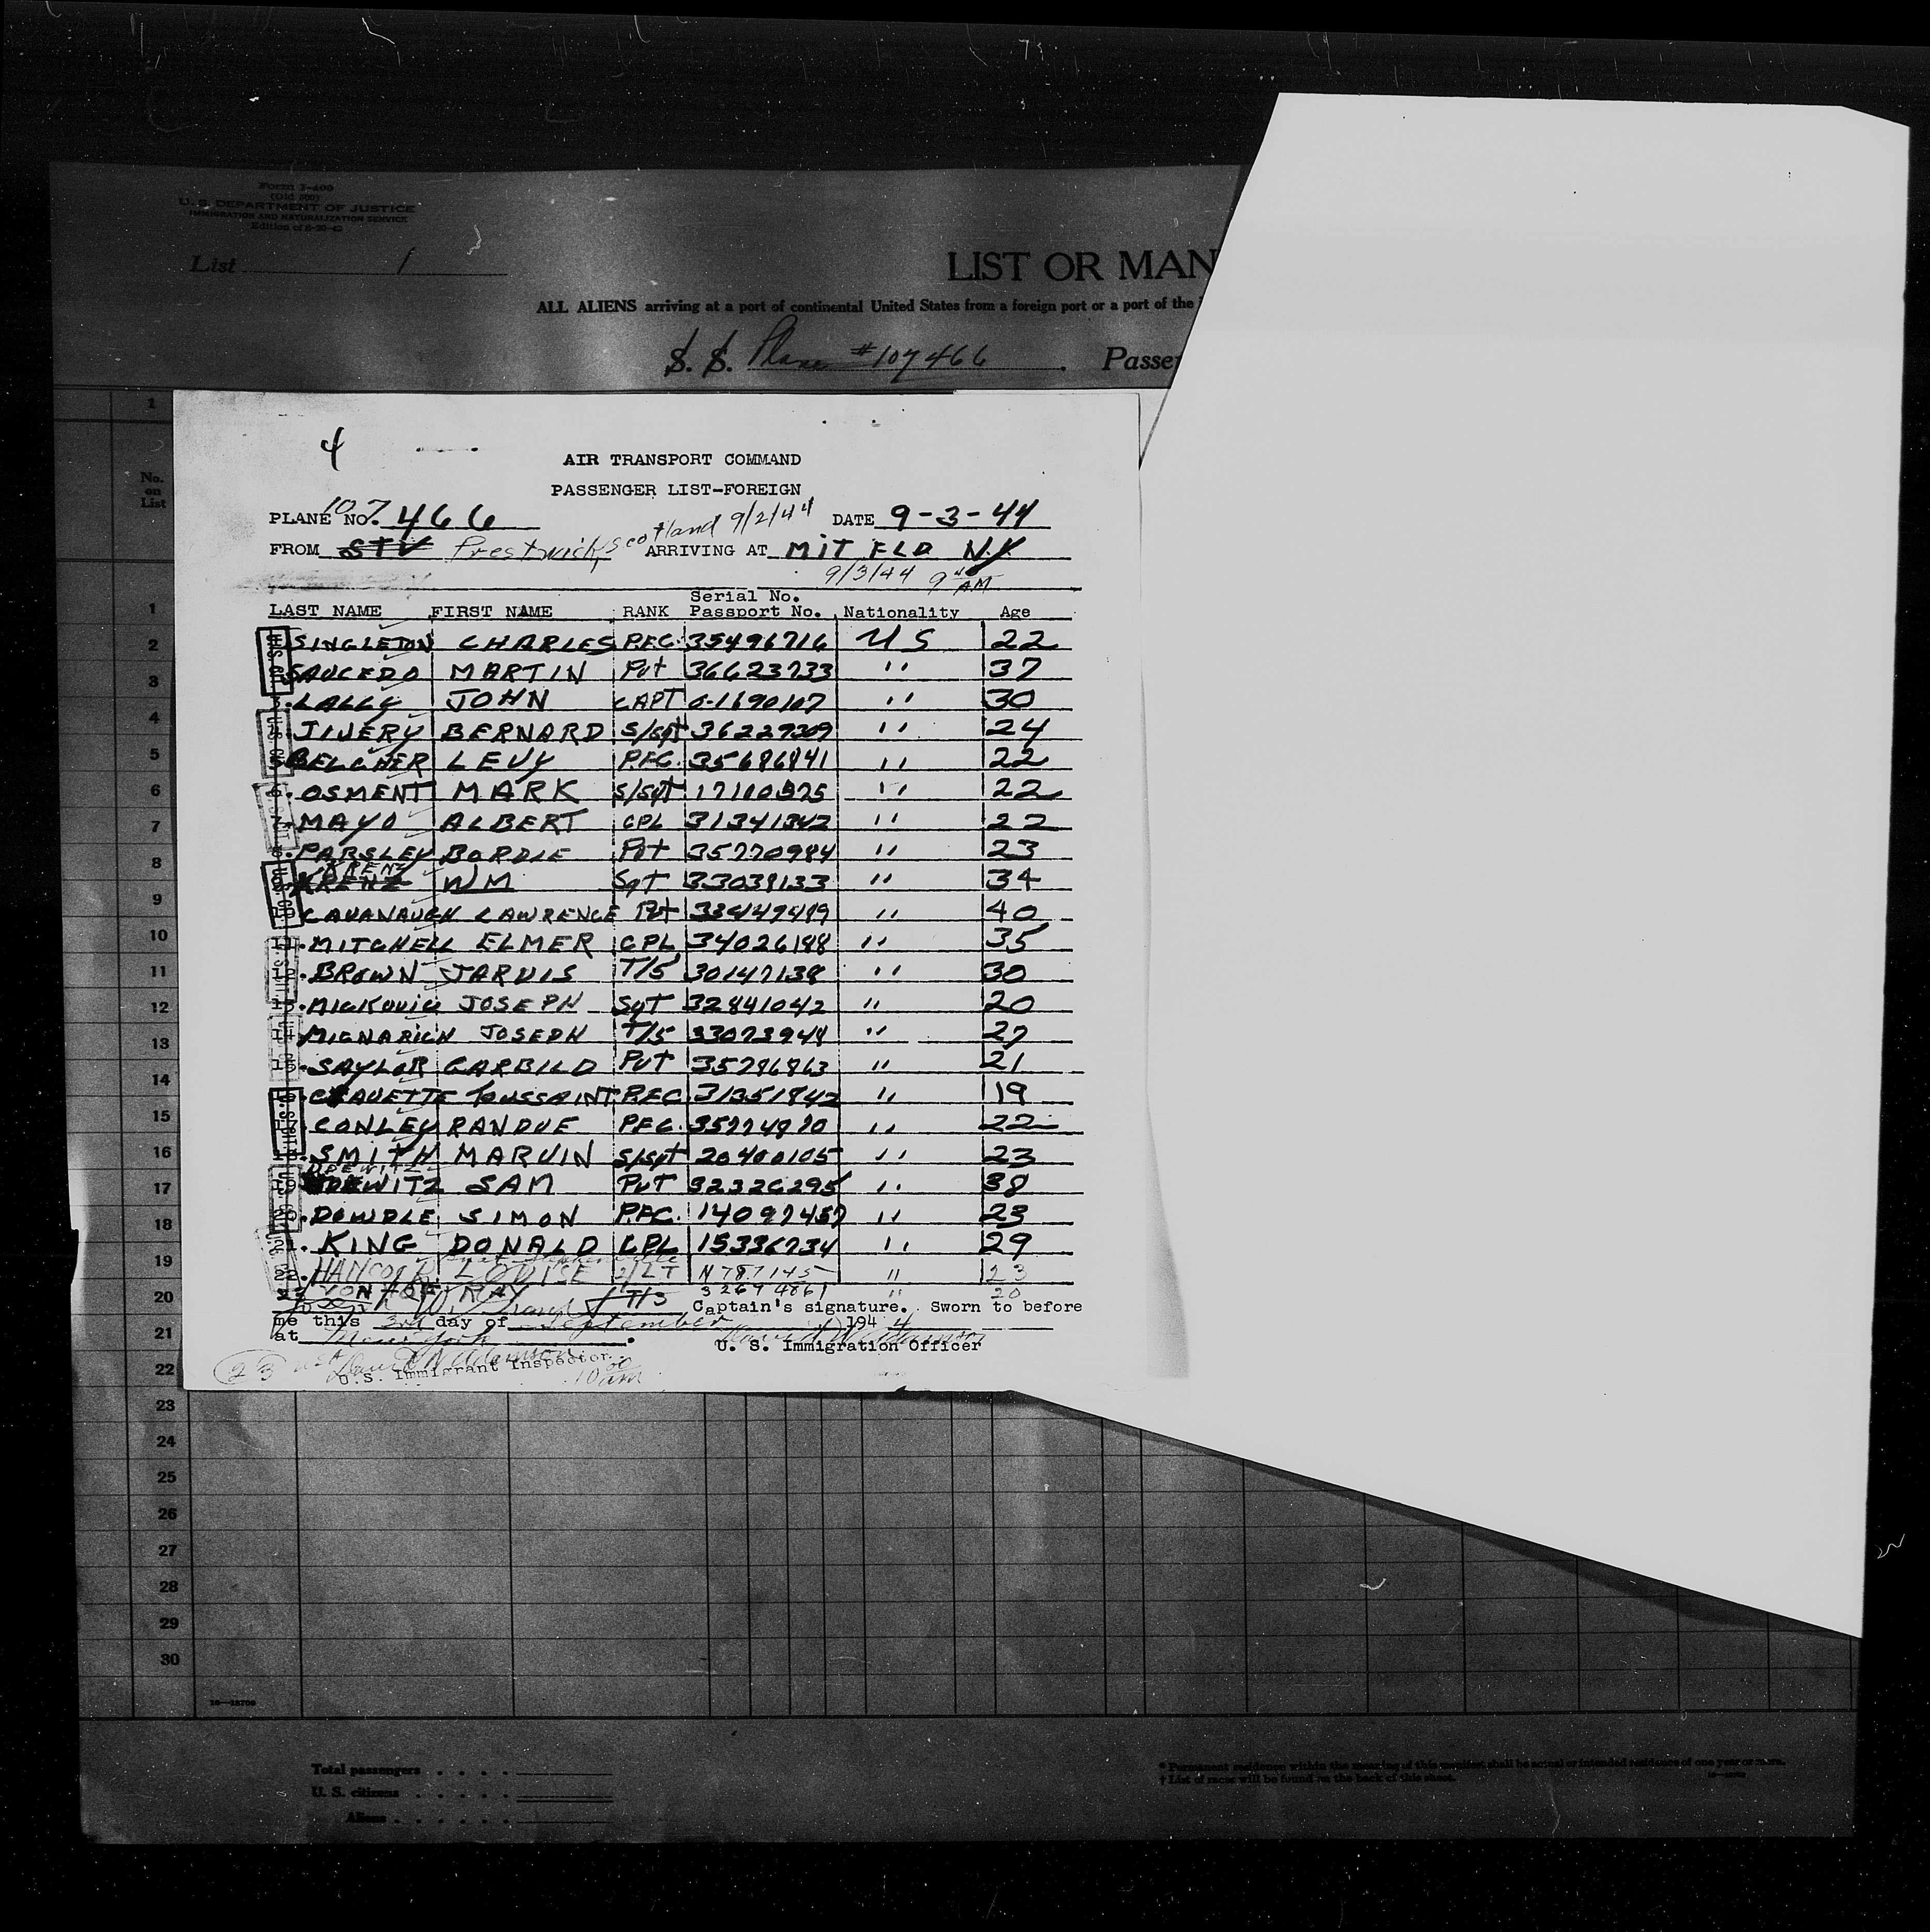 Form I-400
(Old 500)
U. S. DEPARTMENT OF JUSTICE
IMMIGRATION AND NATURALIZATION SERVICE
Edition of 6-30-43
List 1
LIST OR MAN
ALL ALIENS arriving at a port of continental United States from a foreign port or a port of the
S. S. Plane #107466 Passe
1
No.
on
List
4
AIR TRANSPORT COMMAND
PASSENGER LIST-FOREIGN
PLANE NO. 107466 DATE 9-3-44
FROM STV Prestwick, Scotland 9/2/44 ARRIVING AT MIT FLD N.Y.
9/3/44 9 AM
LAST NAME FIRST NAME RANK Serial No. Passport No. Nationality Age
SINGLETON CHARLES PFC. 35496716 US 22
SAUCEDO MARTIN Pvt 36623733 " 37
3. LALLY JOHN CAPT 0-1690107 " 30
JIVERY BERNARD S/Sgt 36229309 " 24
5. BELCHER LEVY PFC. 35686841 " 22
6. OSMENT MARK S/Sgt 17100375 " 22
7. MAYO ALBERT CPL 31341342 " 22
8. PARSLEY BORDIE Pvt 35770984 " 23
KRENZ WM Sgt 33038133 " 34
10. CAVANAUGH LAWRENCE Pvt " 40
11. MITCHELL ELMER CPL 34026188 " 35
12. BROWN JARVIS T/5 30147138 " 30
13. MICKOVIC JOSEPH Sgt 32841042 " 20
14. MIGNARICH JOSEPH T/5 33073948 " 27
15. SAYLOR GARBILD Pvt 35786863 " 21
16. TOUSSAINT PFC. 31351842 " 19
17. CONLEY RANDUE PFC. 35774870 " 22
18. SMITH MARVIN S/Sgt 20400105 " 23
19. SAM Pvt 32326295 " 38
20. DOWDLE SIMON PFC. 14097457 " 23
21. KING DONALD CPL 15336734 " 29
22. HANCOCK LOUISE 2/LT N787145 " 23
23 VON HOF RAY T/3 32694861 " 20
Captain's signature. Sworn to before
me this 3rd day of September 1944
at New York
U. S. Immigration Officer
23
U.S. Immigrant Inspector
10 00 am
1
2
3
4
5
6
7
8
9
10
11
12
13
14
15
16
17
18
19
20
21
22
23
24
25
26
27
28
29
30
Total passengers
U. S. citizens
Aliens
* Permanent residence within the meaning of this manifest shall be actual or intended residence of one year or more.
† List of races will be found on the back of this sheet.